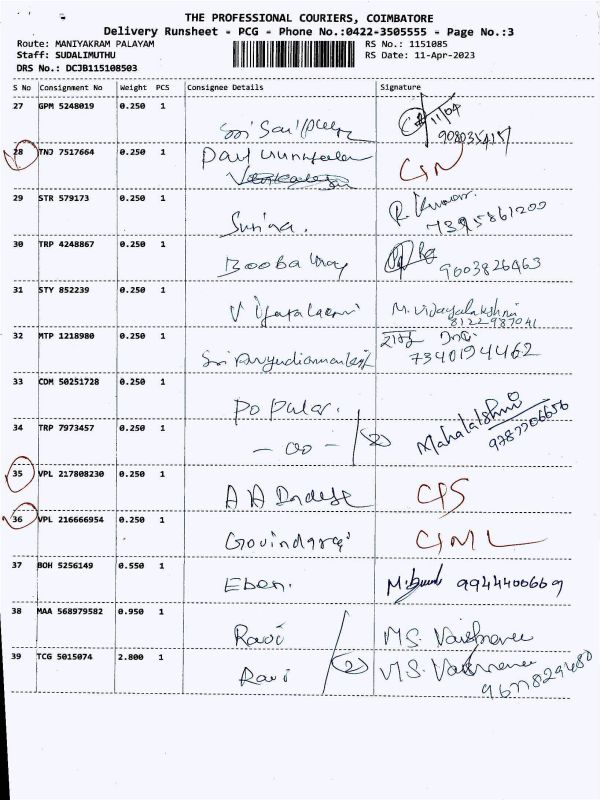 THE PROFESSIONAL COURIERS, COIMBATORE
Delivery Runsheet - PCG - Phone No.:0422-3505555 - Page No.:3
Route: MANIYAKRAM PALAYAM RS No.: 1151085
Staff: SUDALIMUTHU RS Date: 11-Apr-2023
DRS No.: DCJB115108503
S No Consignment No Weight PCS Consignee Details Signature
27 GPM 5248019 0.250 1 11/04
28 TNJ 7517664 0.250 1
29 STR 579173 0.250 1 R. Kumar.
7395861200
30 TRP 4248867 0.250 1
9003826463
31 STY 852239 0.250 1 Vijayalaxmi M. Vijayalakshmi
8122987041
32 MTP 1218980 0.250 1
7340194462
33 CDM 50251728 0.250 1 Popular.
34 TRP 7973457 0.250 1 - do - 2 Mahalakshmi
9787706656
35 VPL 217808230 0.250 1
36 VPL 216666954 0.250 1 Govindaraj
37 BOH 5256149 0.550 1 Eben. 9944400669
38 MAA 568979582 0.950 1 Ravi M.S. Vaishnavee
39 TCG 5015074 2.800 1 Ravi 2 M.S. Vaishnavee
9677829480